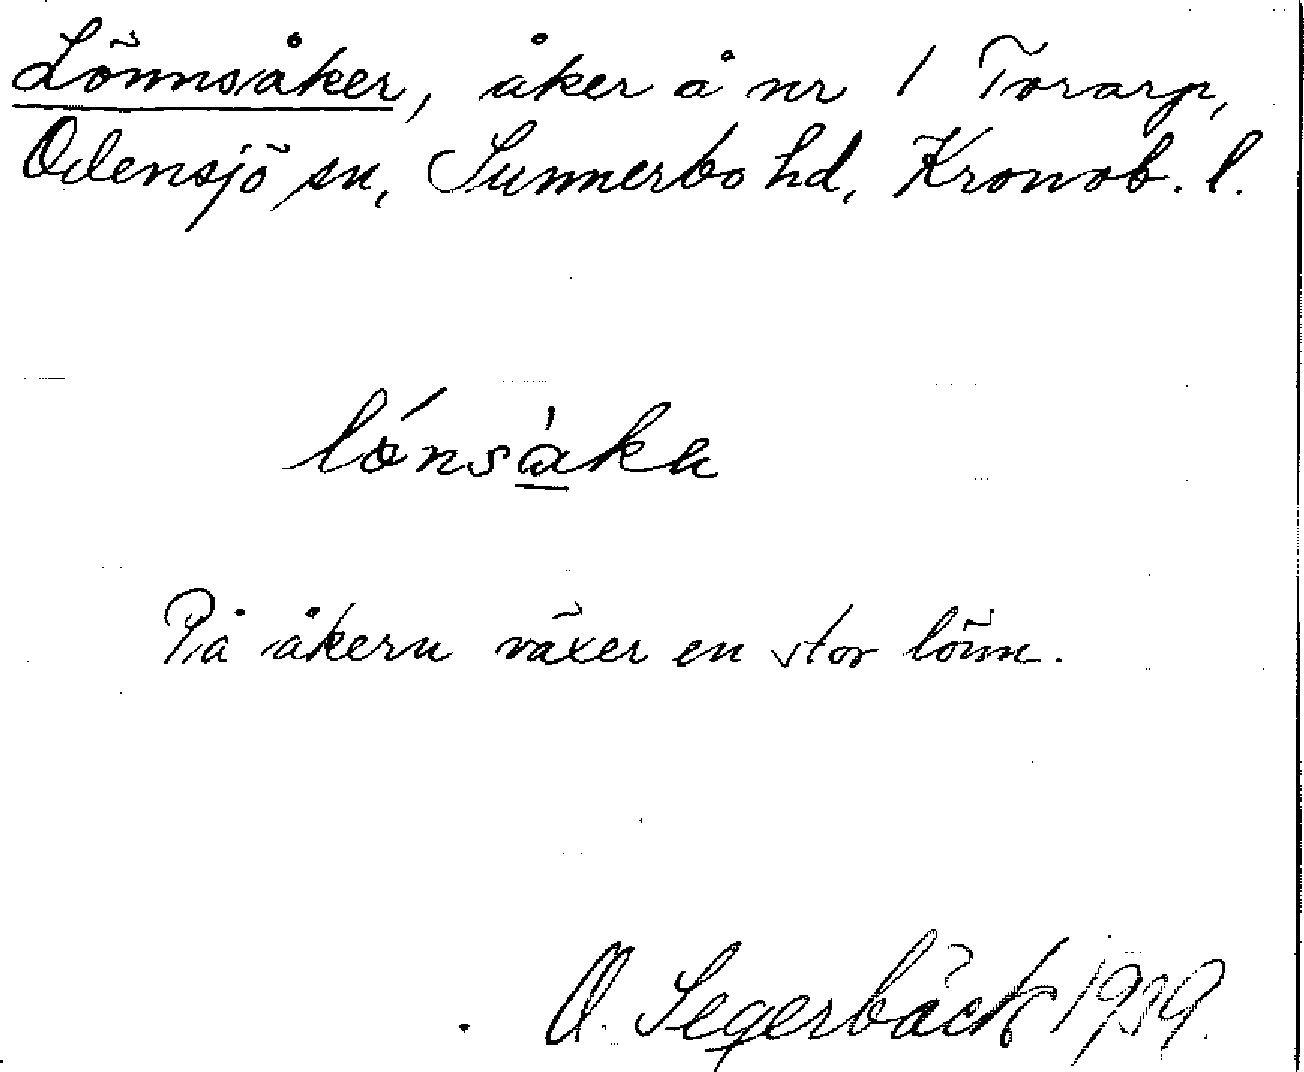 Lönnsåker, åker å nr 1 Torarp,
Odensjö sn, Sunnerbo hd, Kronob. l.
lónsàka
På åkern växer en stor lönn.
O. Segerbäck 1939.